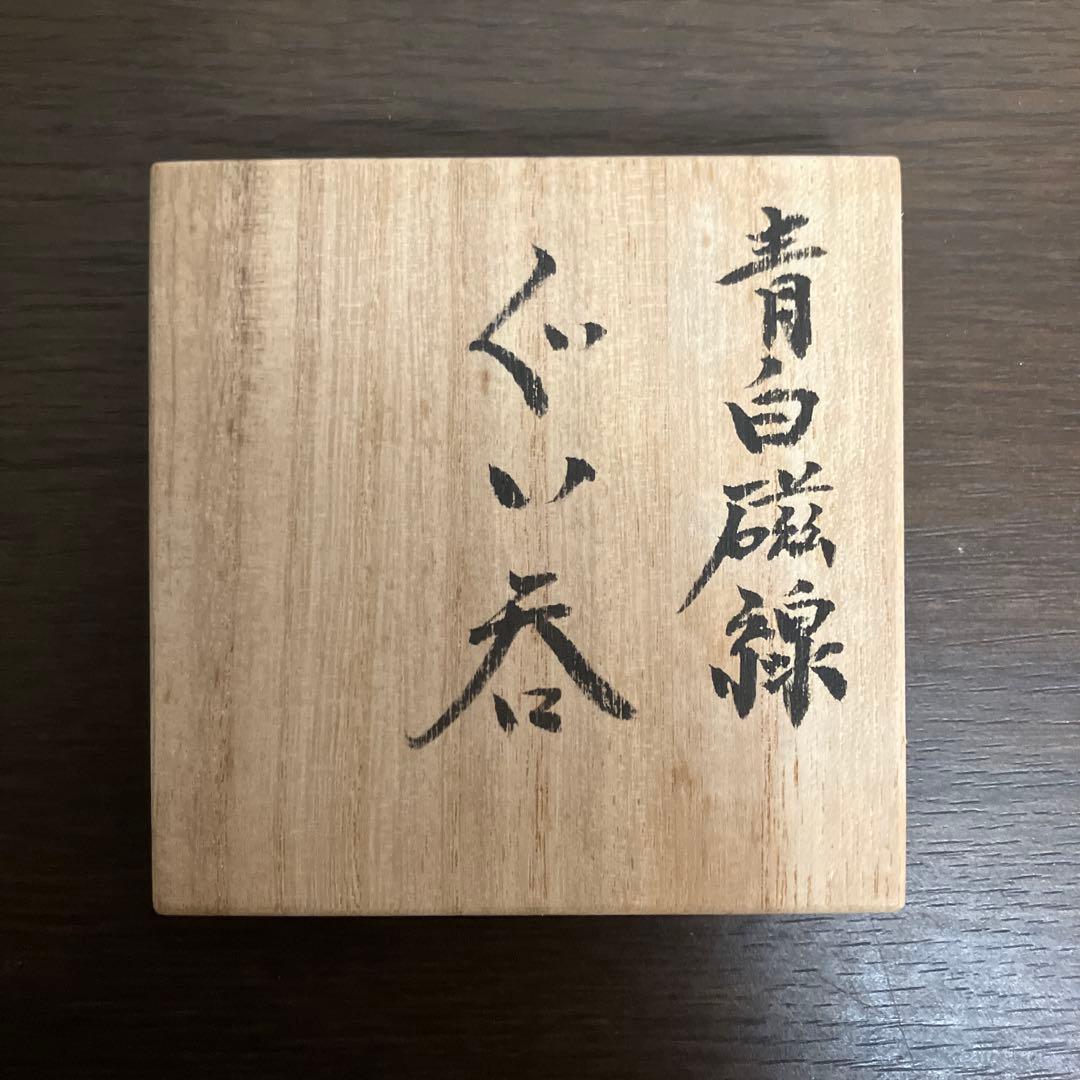 青白磁線
ぐい呑